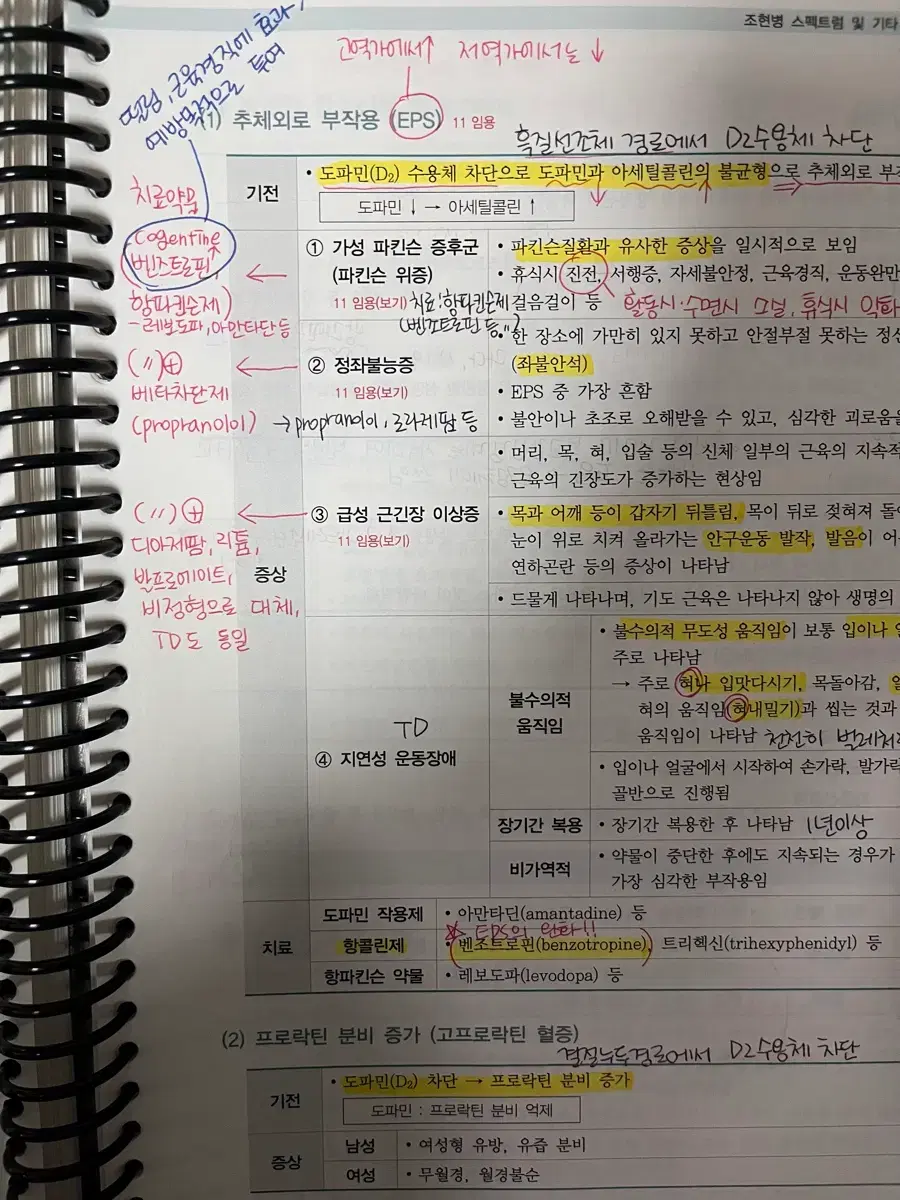 조현병 스펙트럼 및 기타
떨림, 근육경직에 효과,
예방목적으로 투여
고역가에서↑ 저역가에서는 ↓
(1) 추체외로 부작용 (EPS) 11 임용
흑질선조체 경로에서 D2수용체 차단
기전
• 도파민(D₂) 수용체 차단으로 도파민과 아세틸콜린의 불균형으로 추체외로 부작
도파민 ↓ → 아세틸콜린 ↑
치료약물
cogentine
벤즈트로핀,
항파킨슨제)
-레보도파, 아만타단 등
증상
① 가성 파킨슨 증후군
(파킨슨 위증)
11 임용(보기)
치료:항파킨슨제
(벤즈트로핀 등)
• 파킨슨질환과 유사한 증상을 일시적으로 보임
• 휴식시 진전, 서행증, 자세불안정, 근육경직, 운동완만
걸음걸이 등
활동시·수면시 소실, 휴식시 악화
(〃)⊕
베타차단제
(propranolol)
② 정좌불능증
11 임용(보기)
→ propranolol, 로라제팜 등
• 한 장소에 가만히 있지 못하고 안절부절 못하는 정신
(좌불안석)
• EPS 중 가장 흔함
• 불안이나 초조로 오해받을 수 있고, 심각한 괴로움을
(〃)⊕
디아제팜, 리튬,
발프로에이트,
비정형으로 대체,
TD도 동일
③ 급성 근긴장 이상증
11 임용(보기)
• 머리, 목, 혀, 입술 등의 신체 일부의 근육의 지속적
근육의 긴장도가 증가하는 현상임
• 목과 어깨 등이 갑자기 뒤틀림, 목이 뒤로 젖혀져 돌아
눈이 위로 치켜 올라가는 안구운동 발작, 발음이 어
연하곤란 등의 증상이 나타남
• 드물게 나타나며, 기도 근육은 나타나지 않아 생명의
TD
④ 지연성 운동장애
불수의적
움직임
• 불수의적 무도성 움직임이 보통 입이나 얼
주로 나타남
→ 주로 혀나 입맛다시기, 목돌아감, 얼
혀의 움직임(혀내밀기)과 씹는 것과
움직임이 나타남 천천히 벌레처럼
• 입이나 얼굴에서 시작하여 손가락, 발가락
골반으로 진행됨
장기간 복용
• 장기간 복용한 후 나타남 1년이상
비가역적
• 약물이 중단한 후에도 지속되는 경우가
가장 심각한 부작용임
치료
도파민 작용제
• 아만타딘(amantadine) 등
EPS의 완화!!
항콜린제
• 벤조트로핀(benzotropine), 트리헥신(trihexyphenidyl) 등
항파킨슨 약물
• 레보도파(levodopa) 등
(2) 프로락틴 분비 증가 (고프로락틴 혈증)
결절누두경로에서 D2수용체 차단
기전
• 도파민(D₂) 차단 → 프로락틴 분비 증가
도파민 : 프로락틴 분비 억제
증상
남성
• 여성형 유방, 유즙 분비
여성
• 무월경, 월경불순